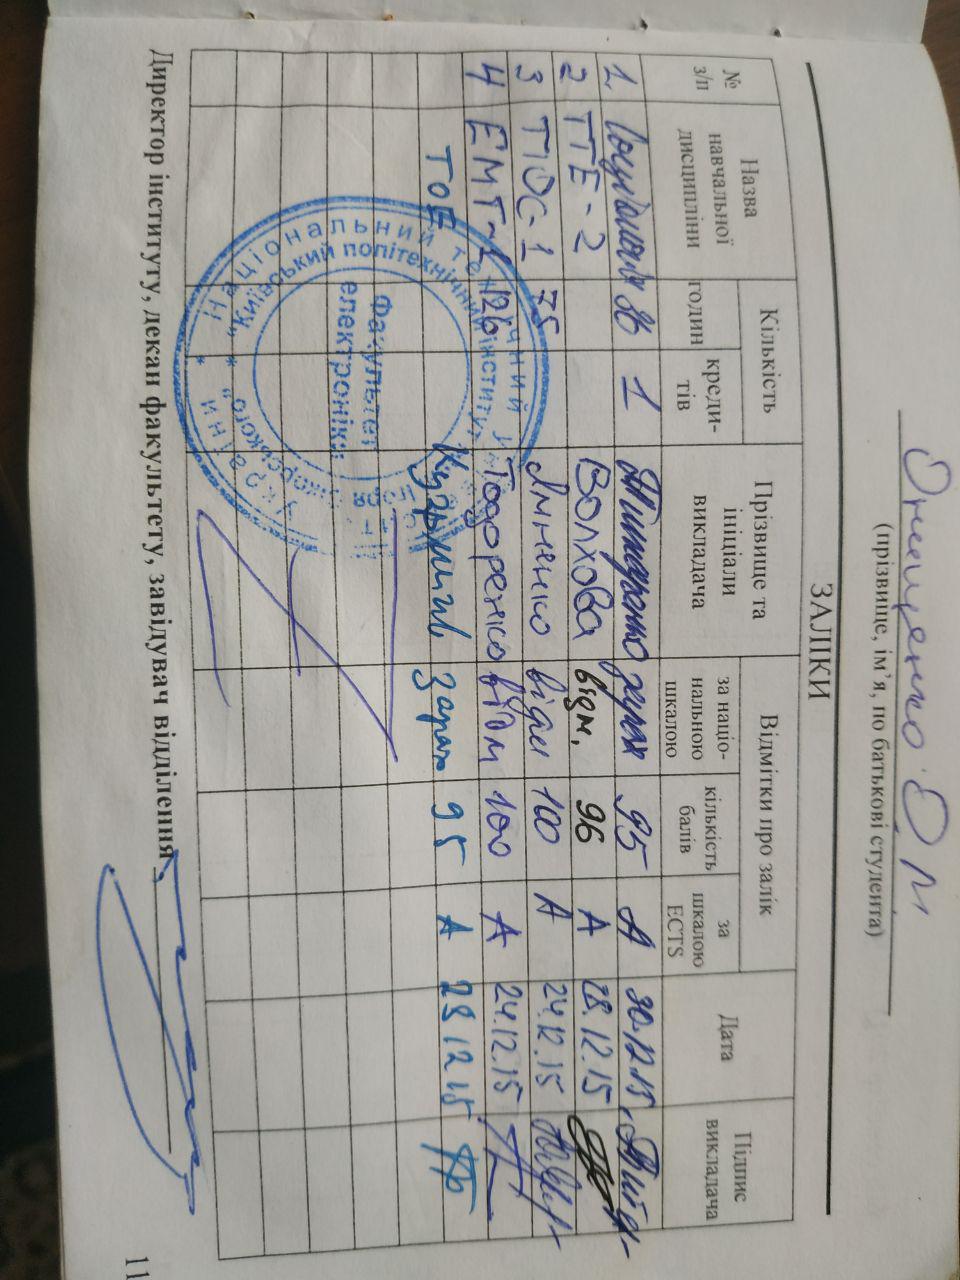 Онищенко О М
(прізвище, ім'я, по батькові студента)
ЗАЛІКИ
№ з/п
Назва навчальної дисципліни
Кількість
годин
креди-тів
Прізвище та ініціали викладача
Відмітки про залік
за націо-нальною шкалою
кількість балів
за шкалою ECTS
Дата
Підпис викладача
1. 36 1 95 А 30.12.15
2 ТТЕ-2 Волхова відм. 96 А 28.12.15
3 ТПОС-1 75 Ямненко відм 100 А 24.12.15
4 ЕМТ-1 126 Тодоренко відм 100 А 24.12.15
ТОЕ зарах 95 А 28 12 15
Національний технічний університет України *
"Київський політехнічний інститут
Факультет
електроніки
Директор інституту, декан факультету, завідувач відділення
11